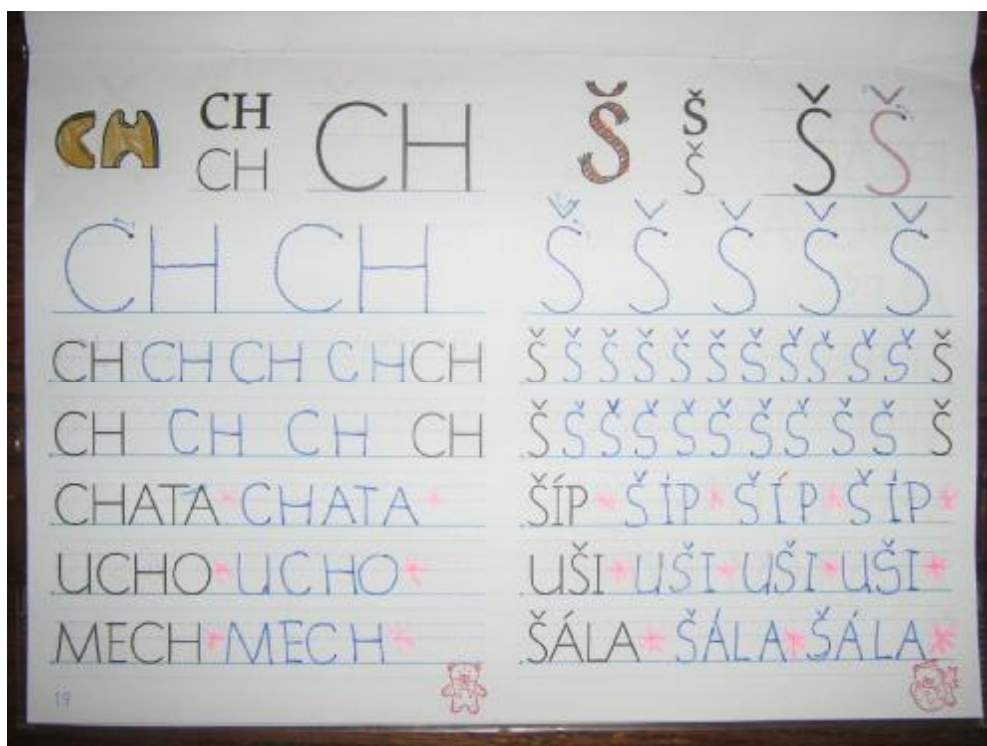 CH CH CH
CH
CH CH
CH CH CH CH CH
CH CH CH CH
CHATA CHATA
UCHO UCHO
MECH MECH
19
Š Š Š Š
Š
Š Š Š Š Š
Š Š Š Š Š Š Š Š Š Š Š Š
Š Š Š Š Š Š Š Š Š Š Š
ŠÍP ŠÍP ŠÍP ŠÍP
UŠI UŠI UŠI UŠI
ŠÁLA ŠÁLA ŠÁLA